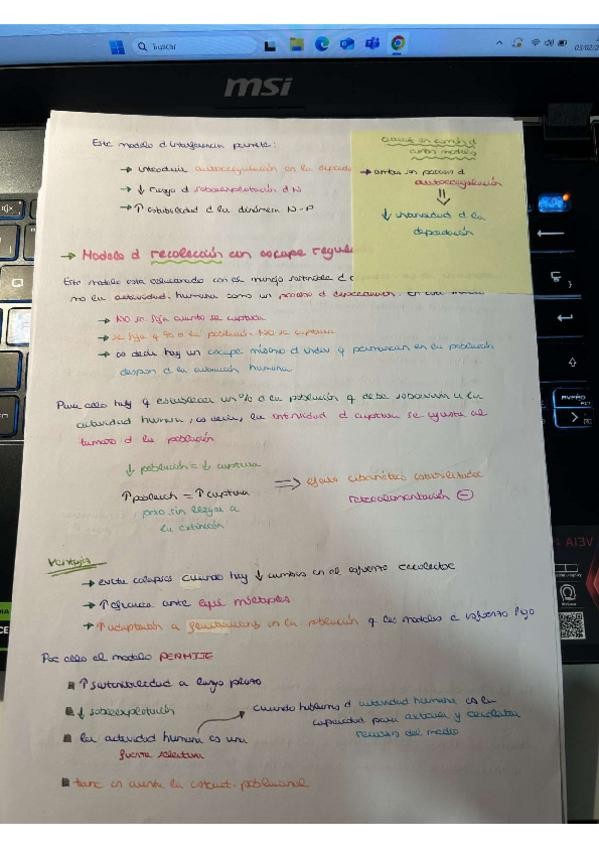 Buscar
03/02/2
msi
Este modelo d interferencia permite:
→ introducir autorregulación en la depreda
→ ↓ riesgo d sobreexplotación d N
→ ↑ estabilidad d la dinámica N-P
ambos modelos
→ ambos son procesos d
autorregulación
⇓
↓ intensidad d la
depredación
→ Modelo d recolección con escape regula
Este modelo esta relacionado con el manejo sostenible d
no la actividad humana como un proceso d depredación. En este modelo
→ NO se fija cuanto se captura
→ se fija q % d la población NO se captura
→ es decir hay un escape mínimo d indiv q permanecen en la población
despues d la actuación humana
Para ello hay q establecer un % d la población q debe sobrevivir a la
actividad humana, es decir, la intensidad d captura se ajusta al
tamaño d la población
↓ población = ↓ captura
↑ población = ↑ captura
pero sin llegar a
la extinción
⇒ efecto cibernético estabilizador
retroalimentación ⊖
Ventajas
→ evita colapsos cuando hay ↓ cambios en el esfuerzo recolector
→ ↑ eficacia ante equi múltiples
→ ↑ adaptación a fluctuaciones en la población q los modelos a esfuerzo fijo
Por ello el modelo PERMITE
↑ sostenibilidad a largo plazo
↓ sobreexplotación
la actividad humana es una
fuerza selectiva
cuando hablamos d actividad humana es la
capacidad para extraer y recolectar
recursos del medio
tiene en cuenta la estruct. poblacional